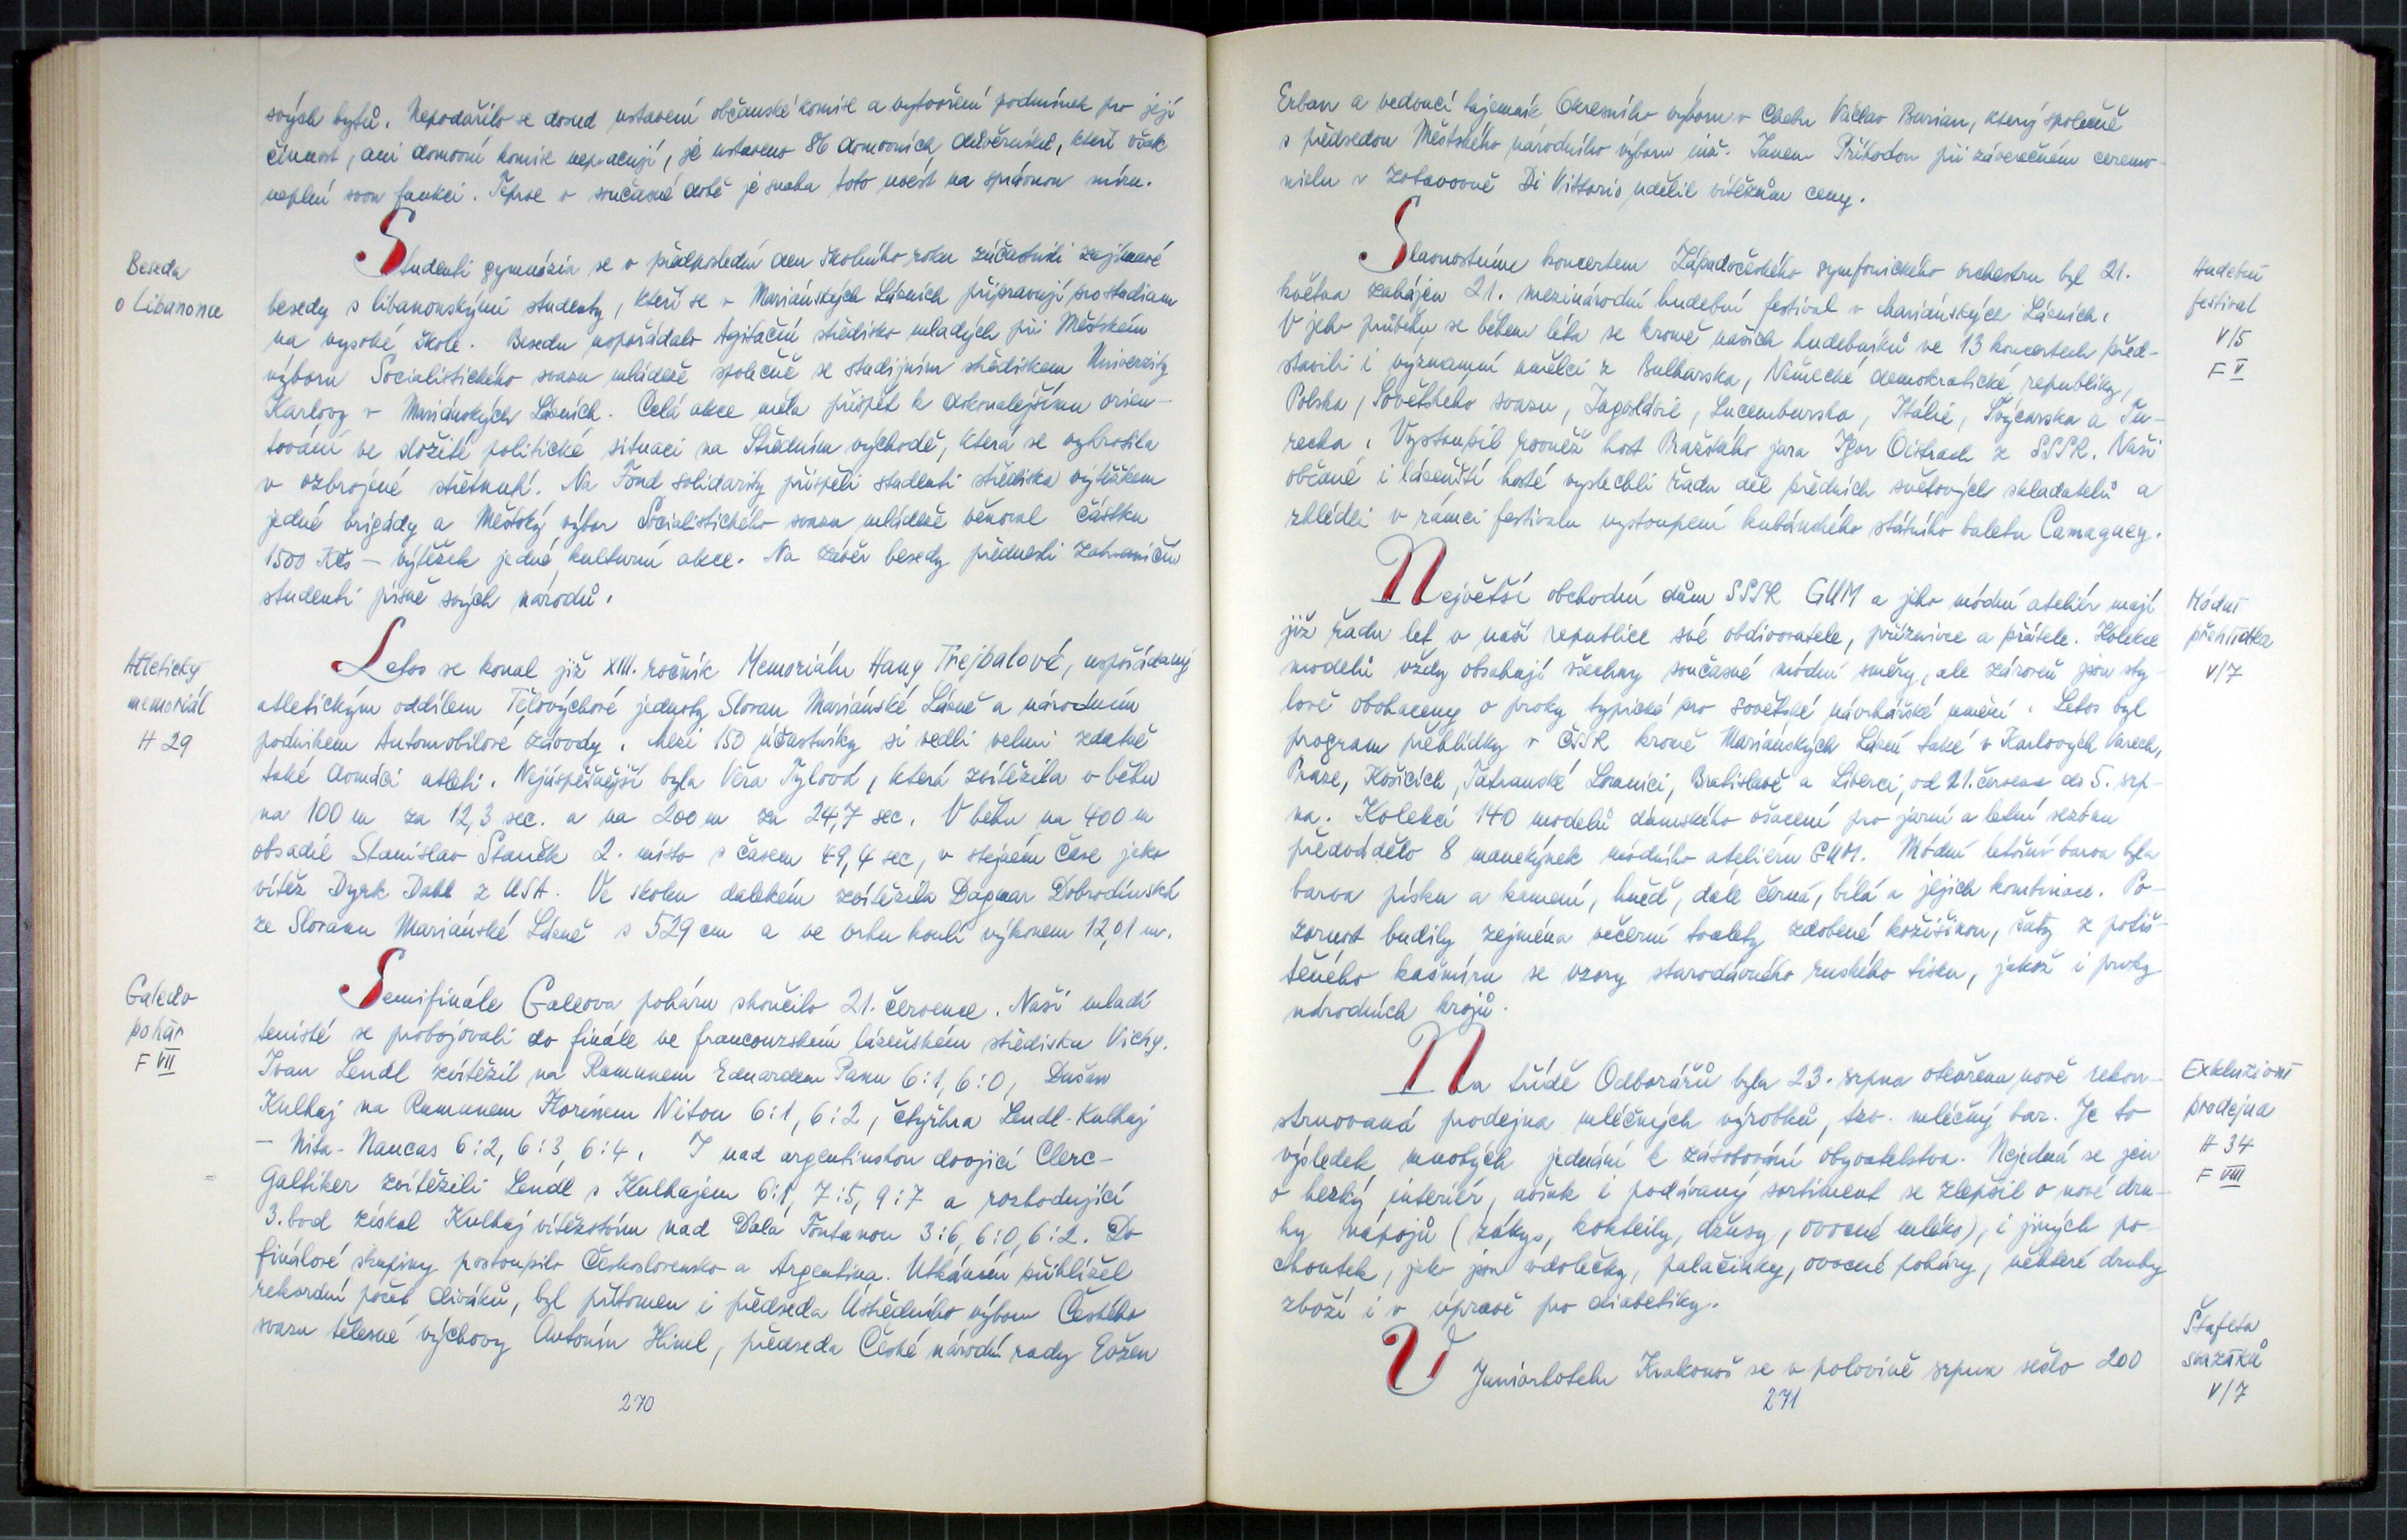 svých bytů. Nepodařilo se dosud ustavení občanské komise a vytvoření podmínek pro její
činnost, ani domovní komise nepracují, je ustaveno 86 domovních důvěrníků, kteří však
neplní svou funkci. Teprve v současné době je snaha toto uvést na správnou míru.
Beseda
o Libanonu
Studenti gymnázia se v předposlední den školního roku zúčastnili zajímavé
besedy s libanonskými studenty, kteří se v Mariánských Lázních připravují pro studium
na vysoké škole. Besedu uspořádalo Agitační středisko mladých při Městském
výboru Socialistického svazu mládeže společně se studijním střediskem Univerzity
Karlovy v Mariánských Lázních. Celá akce měla přispět k dokonalejšímu orien-
tování ve složité politické situaci na Středním východě, která se vyhrotila
v ozbrojené střetnutí. Na Fond solidarity přispěli studenti střediska výtěžkem
jedné brigády a Městský výbor Socialistického svazu mládeže věnoval částku
1500 Kčs – výtěžek jedné kulturní akce. Na závěr besedy přednesli zahraniční
studenti písně svých národů.
Atletický
memoriál
H 29
Letos se konal již XIII. ročník Memoriálu Hany Třejbalové, uspořádaný
atletickým oddílem Tělovýchové jednoty Slovan Mariánské Lázně a národním
podnikem Automobilové závody. Mezi 150 účastníky si vedli velmi zdatně
také domácí atleti. Nejúspěšnější byla Věra Tylová, která zvítězila v běhu
na 100 m za 12,3 sec. a na 200 m za 24,7 sec. V běhu na 400 m
obsadil Stanislav Staněk 2. místo s časem 49,4 sec, v stejném čase jako
vítěz Dyrk Dahl z USA. Ve skoku dalekém zvítězila Dagmar Dobrodinská
ze Slovanu Mariánské Lázně s 529 cm a ve vrhu koulí výkonem 12,01 m.
Galeův
pohár
F VII
Semifinále Galeova poháru skončilo 21. července. Naši mladí
tenisté se probojovali do finále ve francouzském lázeňském středisku Vichy.
Ivan Lendl zvítězil na Rumunem Eduardem Panu 6:1, 6:0, Dušan
Kulhaj na Rumunem Florinem Nitou 6:1, 6:2, čtyřhra Lendl-Kulhaj
– Nita-Naucas 6:2, 6:3, 6:4. I nad argentinskou dvojicí Clerc-
Galtiker zvítězili Lendl s Kulhajem 6:1, 7:5, 9:7 a rozhodující
3. bod získal Kulhaj vítězstvím nad Dala Fontanou 3:6, 6:0, 6:2. Do
finálové skupiny postoupilo Československo a Argentina. Utkáním přihlížel
rekordní počet diváků, byl přítomen i předseda Ústředního výboru Českého
svazu tělesné výchovy Antonín Himl, předseda České národní rady Evžen
270
Erban a vedoucí tajemník Okresního výboru v Chebu Václav Burian, který společně
s předsedou Městského národního výboru inž. Janem Příhodou při závěrečném ceremo-
nielu v zotavovně Di Vittorio udělil vítězům ceny.
Slavnostním koncertem Západočeského symfonického orchestru byl 21.
května zahájen 21. mezinárodní hudební festival v Mariánských Lázních.
V jeho průběhu se během léta se kromě našich hudebníků ve 13 koncertech před-
stavili i významní umělci z Bulharska, Německé demokratické republiky,
Polska, Sovětského svazu, Jugoslávie, Lucemburska, Itálie, Švýcarska a Tu-
recka. Vystoupil rovněž host Pražského jara Igor Oistrach z SSSR. Naši
občané i lázeňští hosté vyslechli řadu děl předních světových skladatelů a
zhlédli v rámci festivalu vystoupení kubánského státního baletu Camaguey.
Hudební
festival
V/5
F V
Největší obchodní dům SSSR GUM a jeho módní ateliér mají
již řadu let v naší republice své obdivovatele, příznivce a přátele. Kolekce
modelů vždy obsahují všechny současné módní směry, ale zároveň jsou sty-
lově obohaceny o prvky typické pro sovětské návrhářské umění. Letos byl
program přehlídky v ČSSR kromě Mariánských Lázní také v Karlových Varech,
Praze, Košicích, Tatranské Lomnici, Bratislavě a Liberci, od 21. června do 5. srp-
na. Kolekci 140 modelů dámského ošacení pro jarní a letní sezónu
předvádělo 8 manekýnek módního ateliéru GUM. Módní letošní barva byla
barva písku a kamení, hněď, dále černá, bílá a jejich kombinace. Po-
zornost budily zejména večerní toalety zdobené kožišinou, šaty z potiš-
těného kašmíru se vzory starodávného ruského tisku, jakož i prvky
národních krojů.
Módní
přehlídka
V/7
Na třídě Odborářů byla 23. srpna otevřena nově rekon-
struovaná prodejna mléčných výrobků, tzv. mléčný bar. Je to
výsledek mnohých jednání k zásobování obyvatelstva. Nejedná se jen
o hezký interiér, avšak i podávaný sortiment se zlepšil o nové dru-
hy nápojů (zákys, kokteily, džusy, ovocné mléko), i jiných po-
choutek, jako jsou vdolečky, palačinky, ovocné poháry, některé druhy
zboží i v úpravě pro diabetiky.
Exkluzivní
prodejna
H 34
F VIII
V Juniorhotelu Krakonoš se v polovině srpna sešlo 200
Štafeta
svazáků
V/7
271